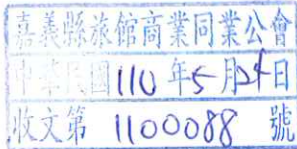 嘉義縣旅館商業同業公會
中華民國110年5月24日
收文第 1100088 號